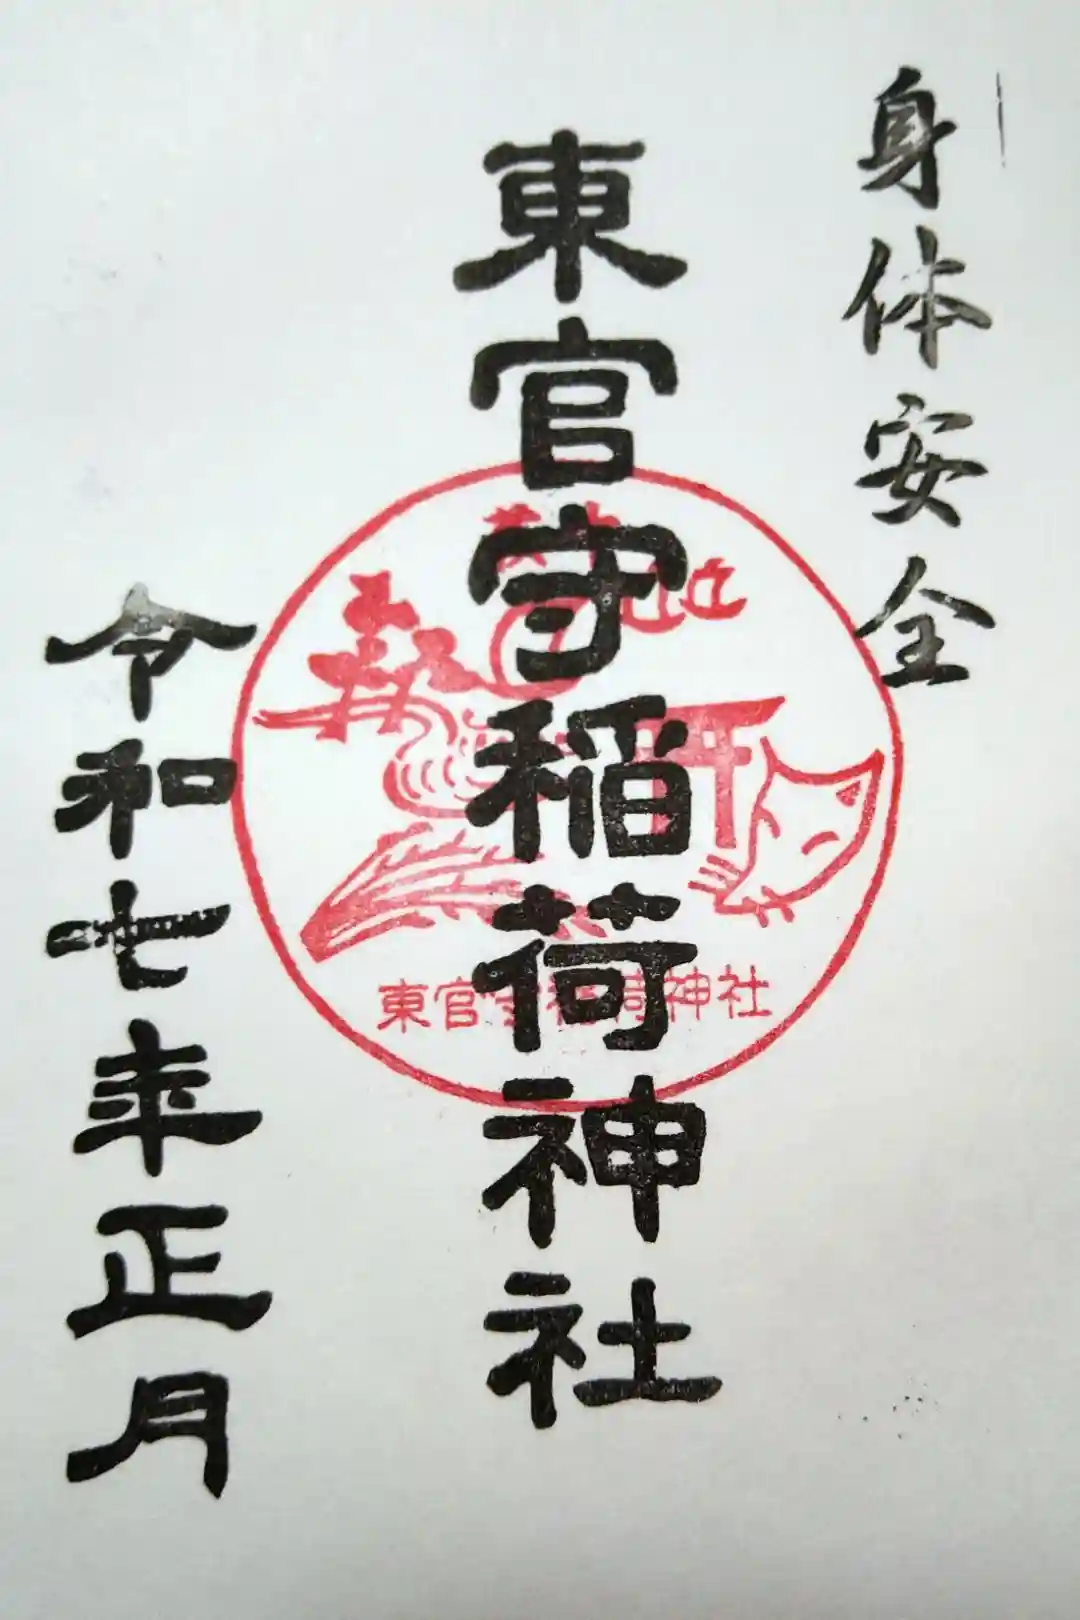 身体安全
東官守稲荷神社
東官守稲荷神社
令和七年正月